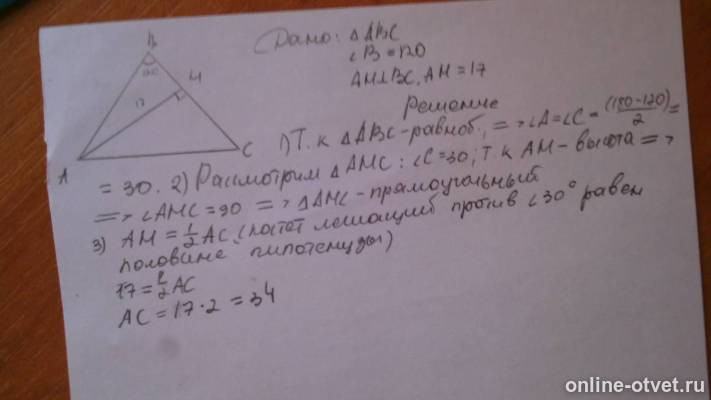 B
120
M
17
A
C
Дано: △ABC
∠B = 120
AM⊥BC, AM = 17
Решение
1) Т. к △ABC - равноб., => ∠A = ∠C = (180-120)/2 =
= 30. 2) Рассмотрим △AMC : ∠C = 30; Т. к AM - высота =>
=> ∠AMC = 90 => △AMC - прямоугольный
3) AM = 1/2 AC (катет лежащий против ∠30° равен
половине гипотенузы)
17 = 1/2 AC
AC = 17 · 2 = 34
online-otvet.ru